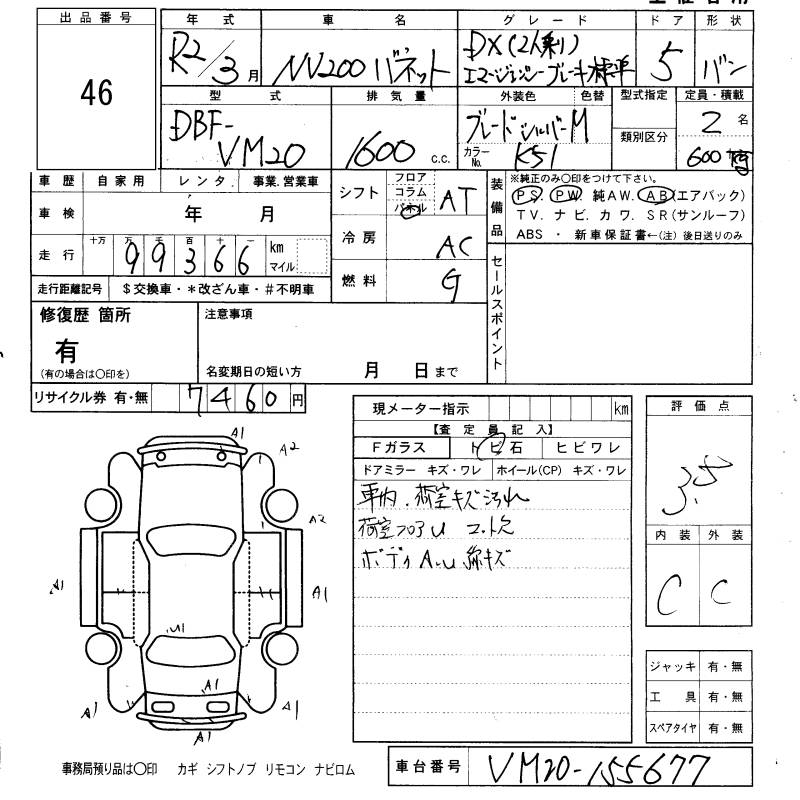 出品番号
46
年式
R2/3月
車名
NV200 バネット
グレード
DX(2人乗り)
エマージェンシーブレーキ標準
ドア
5
形状
バン
型式
DBF-
VM20
排気量
1600 c.c.
外装色 色替
ブレードシルバーM
カラーNo. K51
型式指定
類別区分
定員・積載
2名
600
車歴 自家用 レンタ 事業.営業車
車検 年 月
走行 十万 万 千 百 十 一
99366 km マイル
走行距離記号 $交換車・*改ざん車・#不明車
シフト フロア コラム パネル AT
冷房 AC
燃料 G
装備品
※純正のみ〇印をつけて下さい。
PS. PW. 純AW. AB(エアバック)
TV. ナビ. カワ. SR(サンルーフ)
ABS ・ 新車保証書←(注) 後日送りのみ
セールスポイント
修復歴 箇所
有
(有の場合は〇印を)
注意事項
名変期日の短い方 月 日まで
リサイクル券 有・無 7460円
現メーター指示 km
【査定員記入】
Fガラス トビ石 ヒビワレ
ドアミラー キズ・ワレ ホイール(CP) キズ・ワレ
車内.荷室キズ汚れ
荷室フロアU
ボディA.U 線キズ
評価点
3.5
内装 外装
C C
ジャッキ 有・無
工具 有・無
スペアタイヤ 有・無
A1
A2
A2
A1
A1
U1
A1
A1
A1
A1
事務局預り品は〇印 カギ シフトノブ リモコン ナビロム
車台番号 VM20-155677